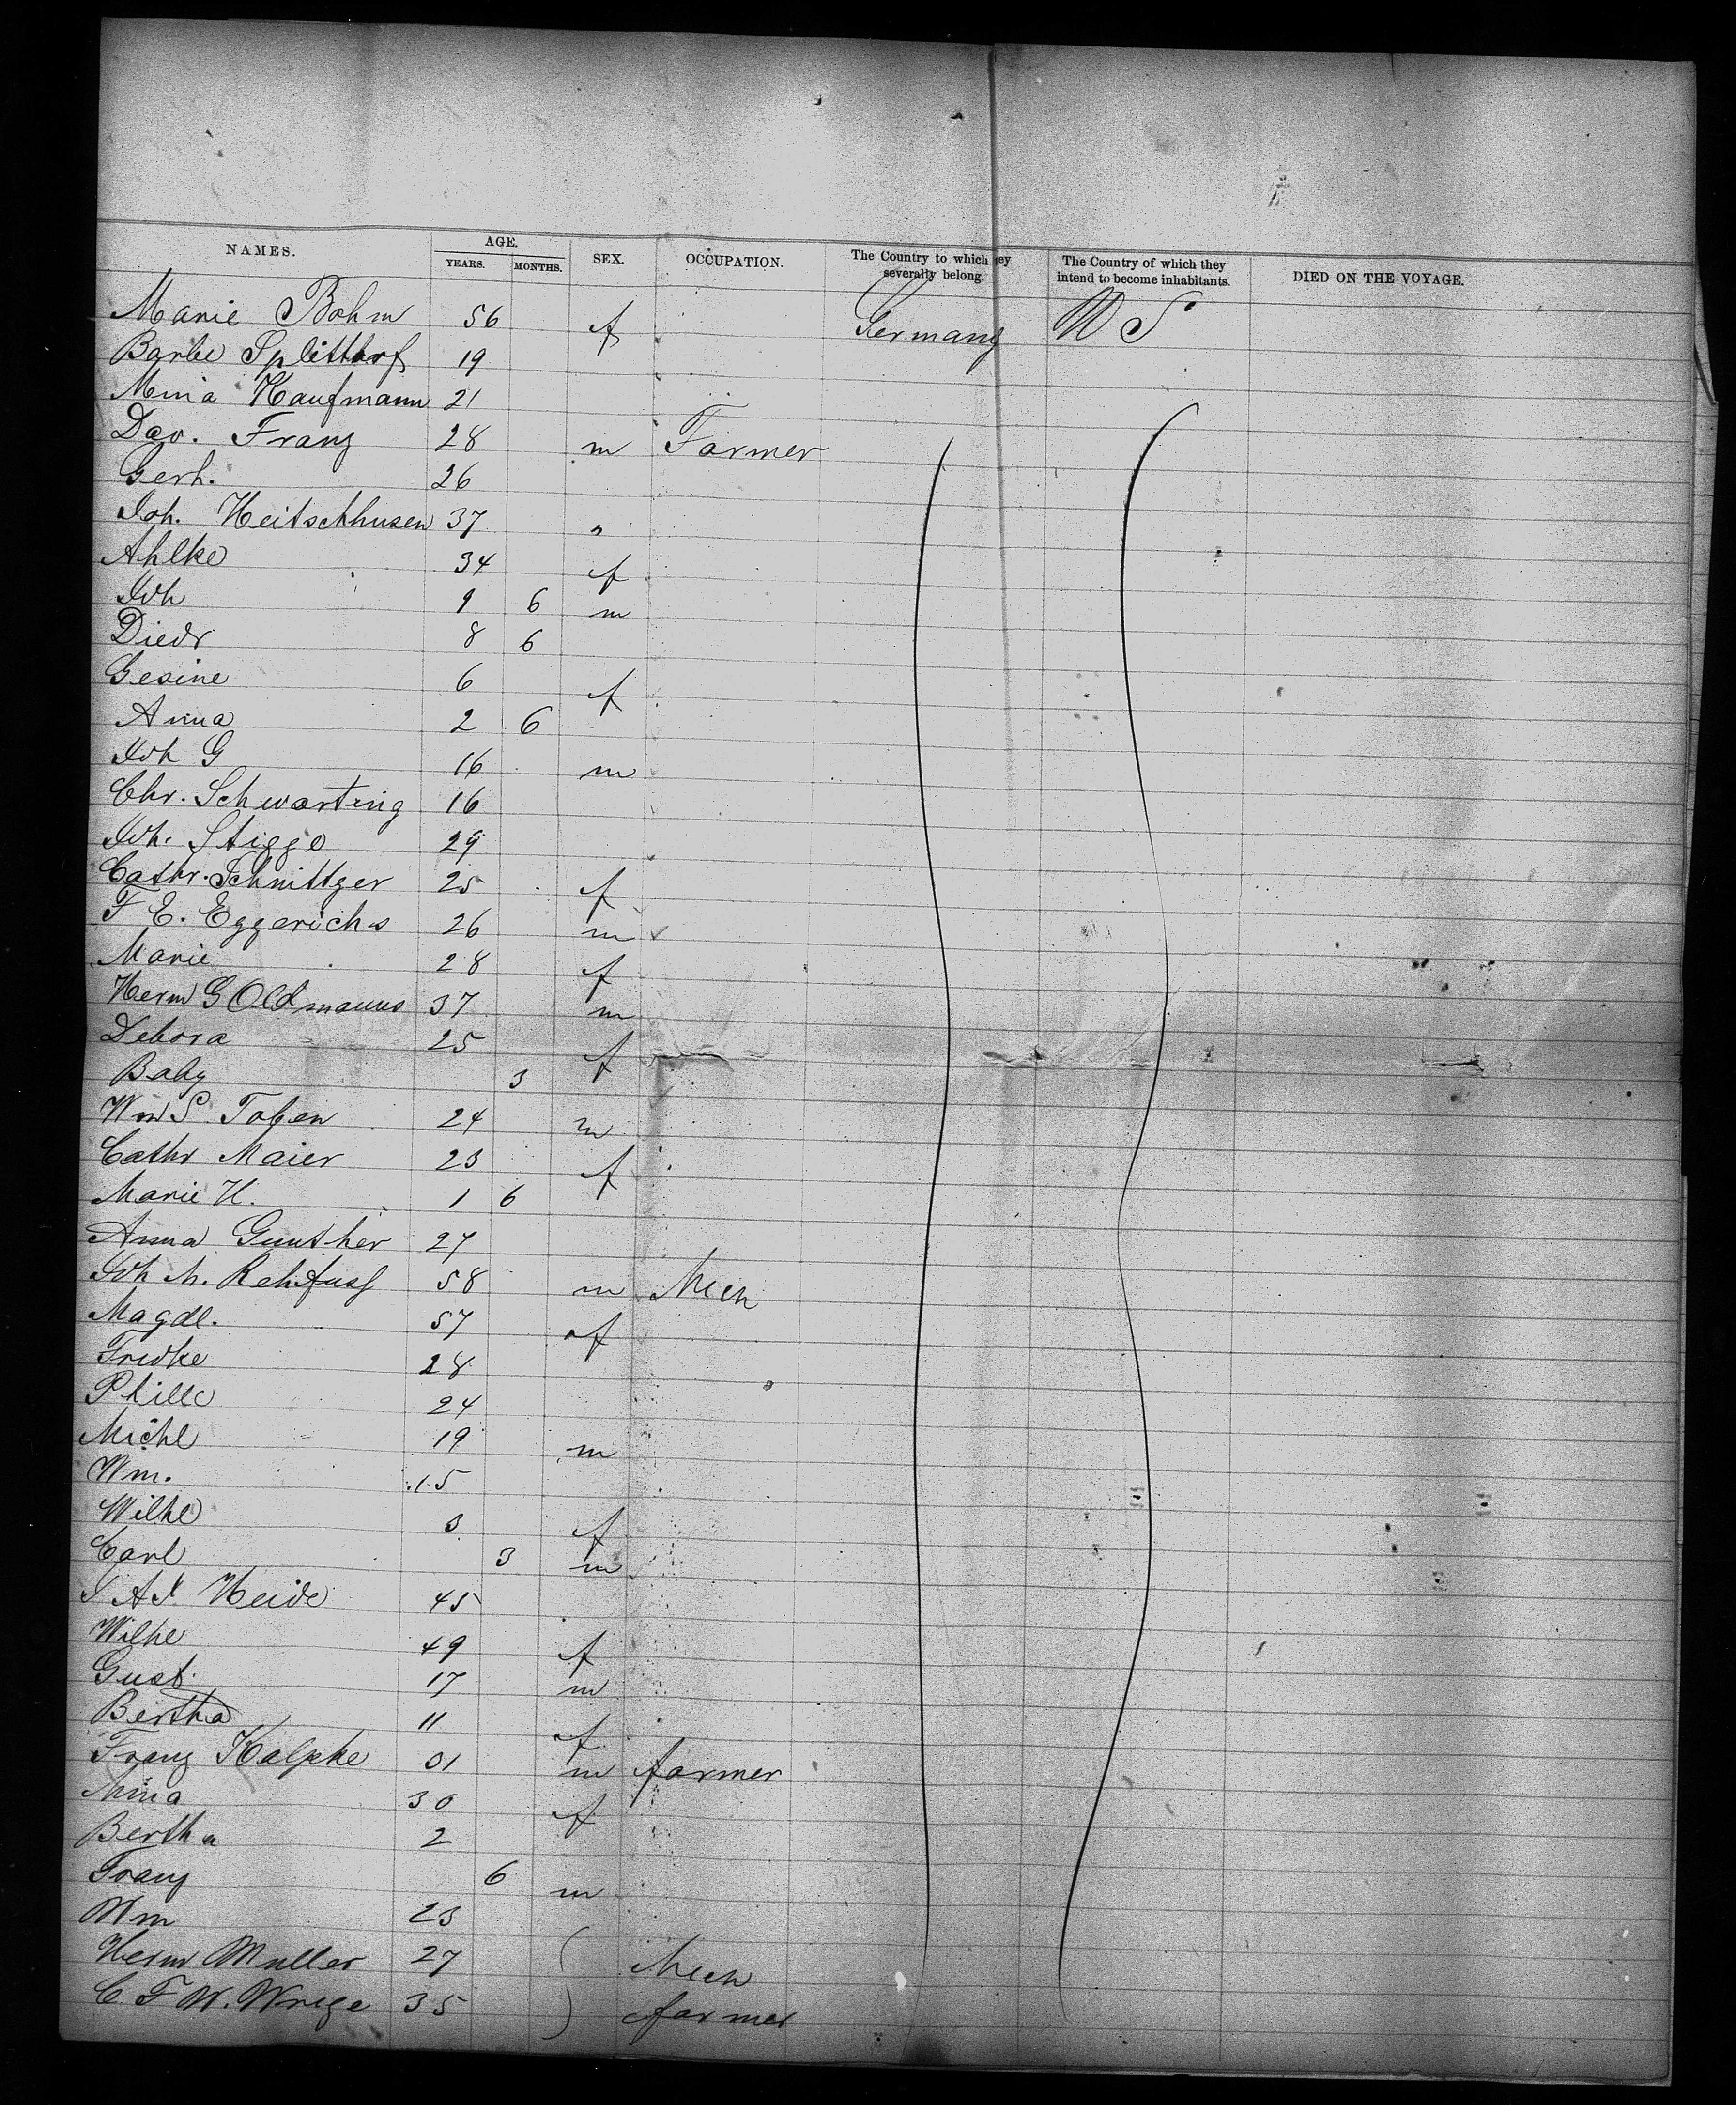 NAMES. AGE. YEARS. MONTHS. SEX. OCCUPATION. The Country to which they severally belong. The Country of which they intend to become inhabitants. DIED ON THE VOYAGE.
Marie Bohm 56 f Germany U S
Barbe Splittdorf 19
Mina Kaufmann 21
Dav. Franz 28 m Farmer
Gerh. 26
Joh. Heitschhusen 37 "
Ahlke 34 f
Joh 9 6 m
Diedr 8 6
Gesine 6 f
Anna 2 6
Joh G 16 m
Chr. Schwarting 16
Joh. Stigge 29
Cathr. Schnittger 25 f
F E. Eggerichs 26 m
Marie 28 f
Herm G Oldmanns 37 m
Debora 25 f
Baby 3
Wm S. Toben 24 m
Cathr Maier 23 f
Marie H. 1 6
Anna Gunther 27
Joh M. Rehfuss 58 m Mech
Magdl. 57 f
Fredke 28
Phille 24
Michl 19 m
Wm. 15
Wilhe 3 f
Carl 3 m
J A J Heide 45
Wilhe 49 f
Gust. 17 m
Bertha 11 f
Franz Kalpke 31 m farmer
Mina 30 f
Bertha 2
Franz 6 m
Wm 23
Herm Muller 27 Mech
C F W. Wrege 35 farmer